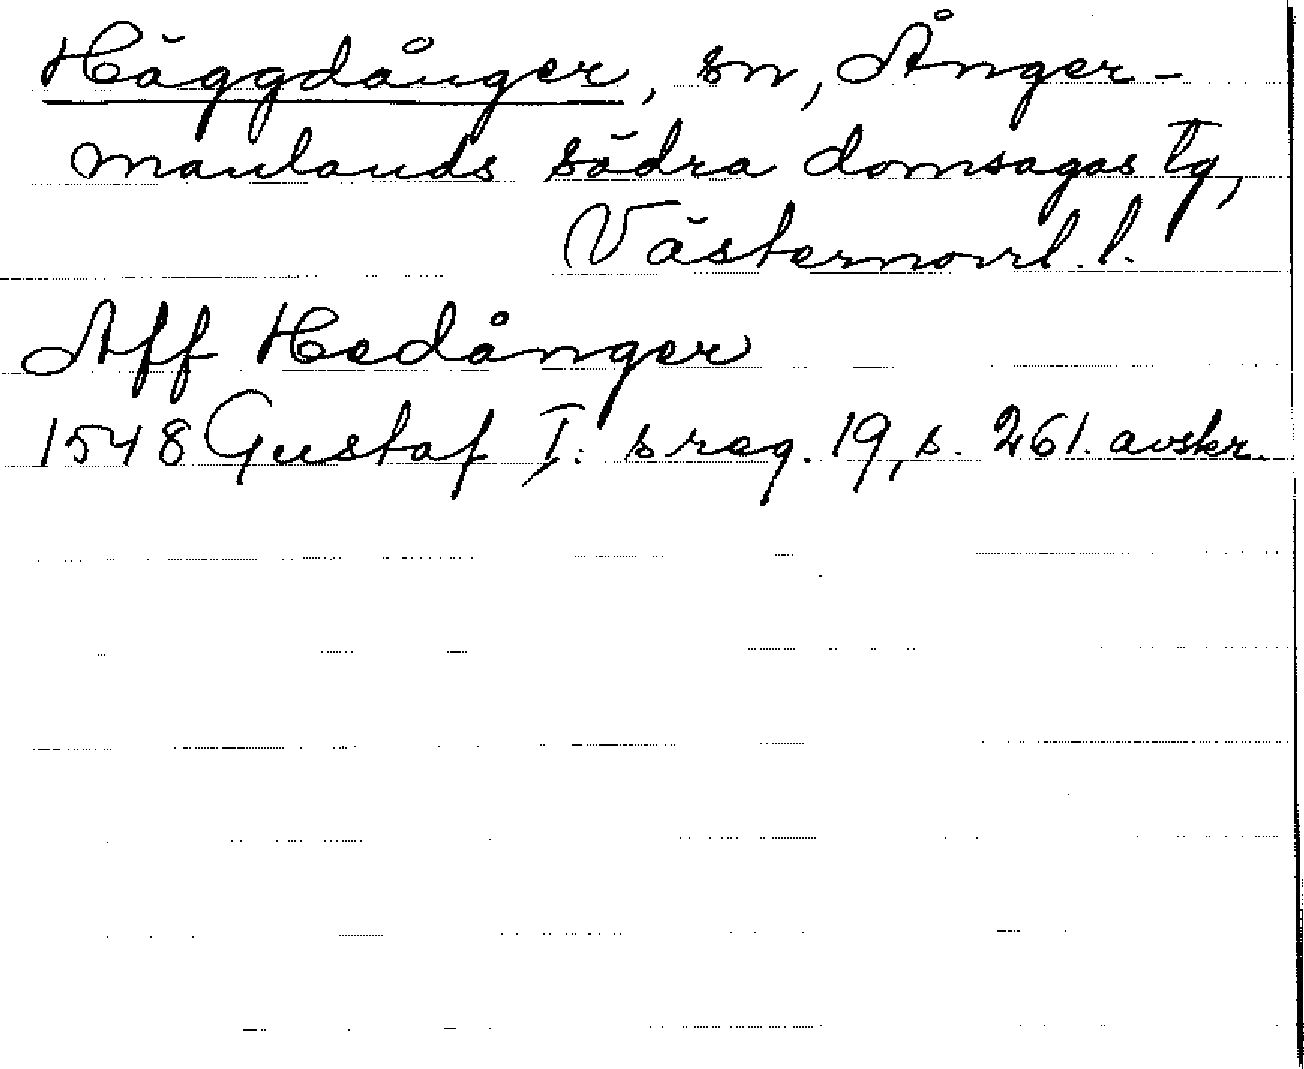 Häggdånger, sn, Ånger-
manlands södra domsagas tg,
Västernorrl. l.
Aff Hedånger
1548 Gustaf I:s reg. 19, s. 261. avskr.